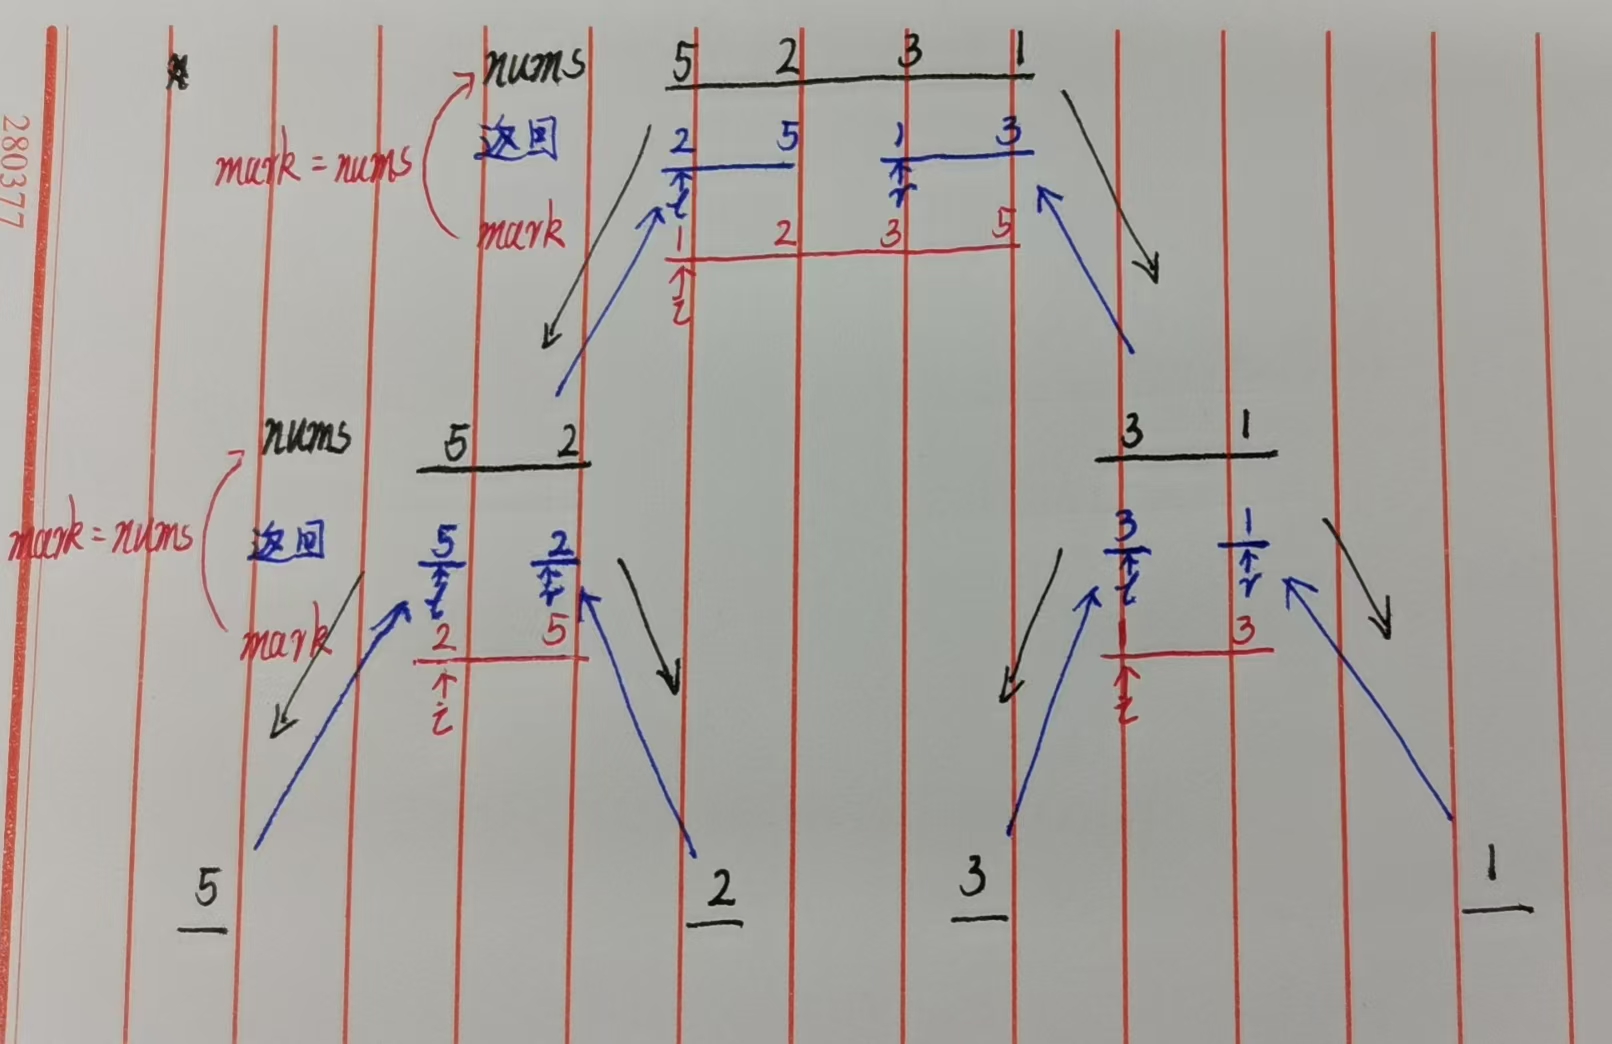 nums 5 2 3 1
mark = nums 返回 2 5 1 3
l r
mark 1 2 3 5
i
280377
nums 5 2 3 1
mark = nums 返回 5 2 3 1
l r l r
mark 2 5 1 3
i i
5 2 3 1